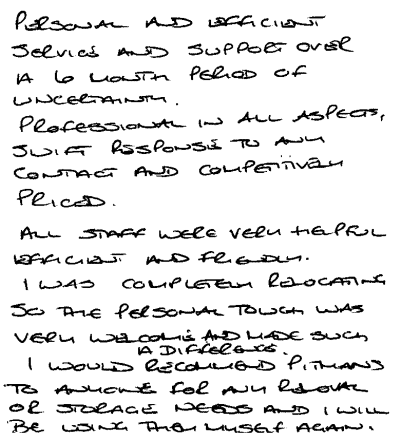 PERSONAL AND EFFICIENT
SERVICE AND SUPPORT OVER
A 6 MONTH PERIOD OF
UNCERTAINTY.
PROFESSIONAL IN ALL ASPECTS,
SWIFT RESPONSE TO ANY
CONTACT AND COMPETITIVELY
PRICED.
ALL STAFF WERE VERY HELPFUL
EFFICIENT AND FRIENDLY.
I WAS COMPLETELY RELOCATING
SO THE PERSONAL TOUCH WAS
VERY WELCOME AND MADE SUCH
A DIFFERENCE.
I WOULD RECOMMEND PITMANS
TO ANYONE FOR ANY REMOVAL
OR STORAGE NEEDS AND I WILL
BE USING THEM MYSELF AGAIN.